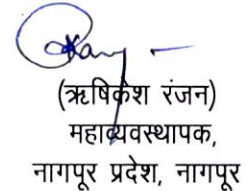 (ऋषिकेश रंजन)
महाव्यवस्थापक,
नागपूर प्रदेश, नागपूर